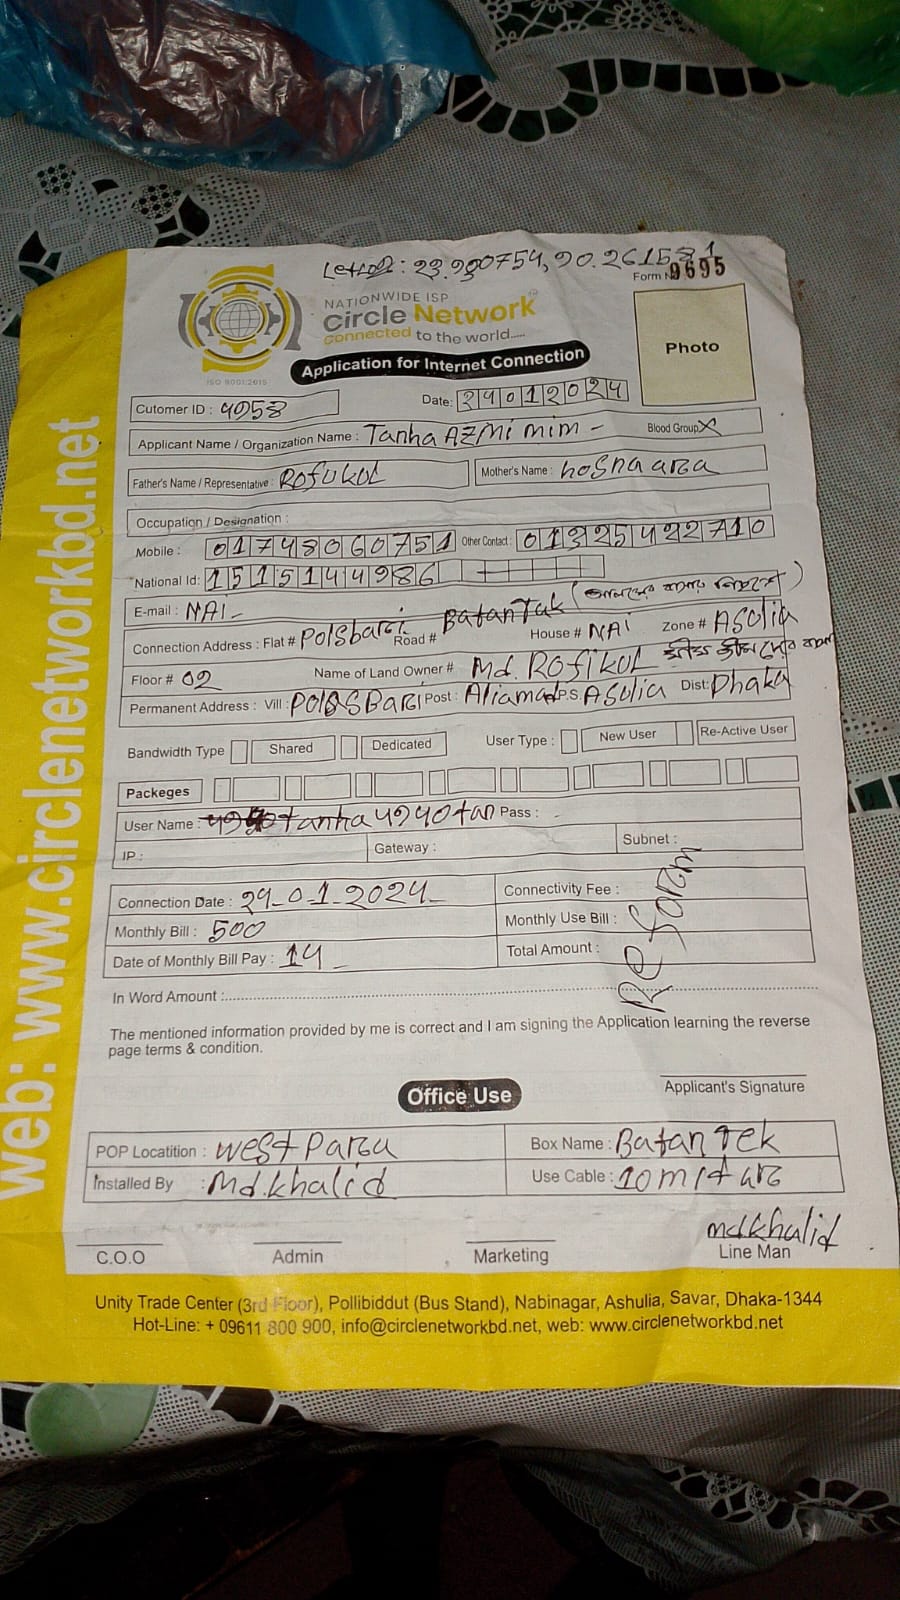 23.930754, 90.261581
Form No 9695
NATIONWIDE ISP
Circle Network
Connected to the world.....
ISO 9001:2015
Application for Internet Connection
Photo
Cutomer ID : 4958
Date: 29012024
Applicant Name / Organization Name : Tanha AZMi mim -
Blood Group X
Father's Name / Representative : Rofukol
Mother's Name : hosna ara
Occupation / Designation :
Mobile : 01748060751 Other Contact : 01325422710
National Id: 1515144986
E-mail : NAI -
Connection Address : Flat # Polsbari Road # BatanTak House # NAi Zone # ASolia
Floor # 02 Name of Land Owner # Md. Rofikol
Permanent Address : Vill : POLASBari Post : P.S ASolia Dist: Dhaka
Bandwidth Type Shared Dedicated User Type : New User Re-Active User
Packeges
User Name : tanha Pass :
IP : Gateway : Subnet :
Connection Date : 29-01-2024 Connectivity Fee :
Monthly Bill : 500 Monthly Use Bill :
Date of Monthly Bill Pay : 14 - Total Amount :
Re foram
In Word Amount :
The mentioned information provided by me is correct and I am signing the Application learning the reverse
page terms & condition.
Applicant's Signature
Office Use
POP Locatition : West Para Box Name : Batan Tek
Installed By : Md.khalid Use Cable : 10 mitare
md khalid
C.O.O Admin Marketing Line Man
Unity Trade Center (3rd Floor), Pollibiddut (Bus Stand), Nabinagar, Ashulia, Savar, Dhaka-1344
Hot-Line: + 09611 800 900, info@circlenetworkbd.net, web: www.circlenetworkbd.net
web: www.circlenetworkbd.net